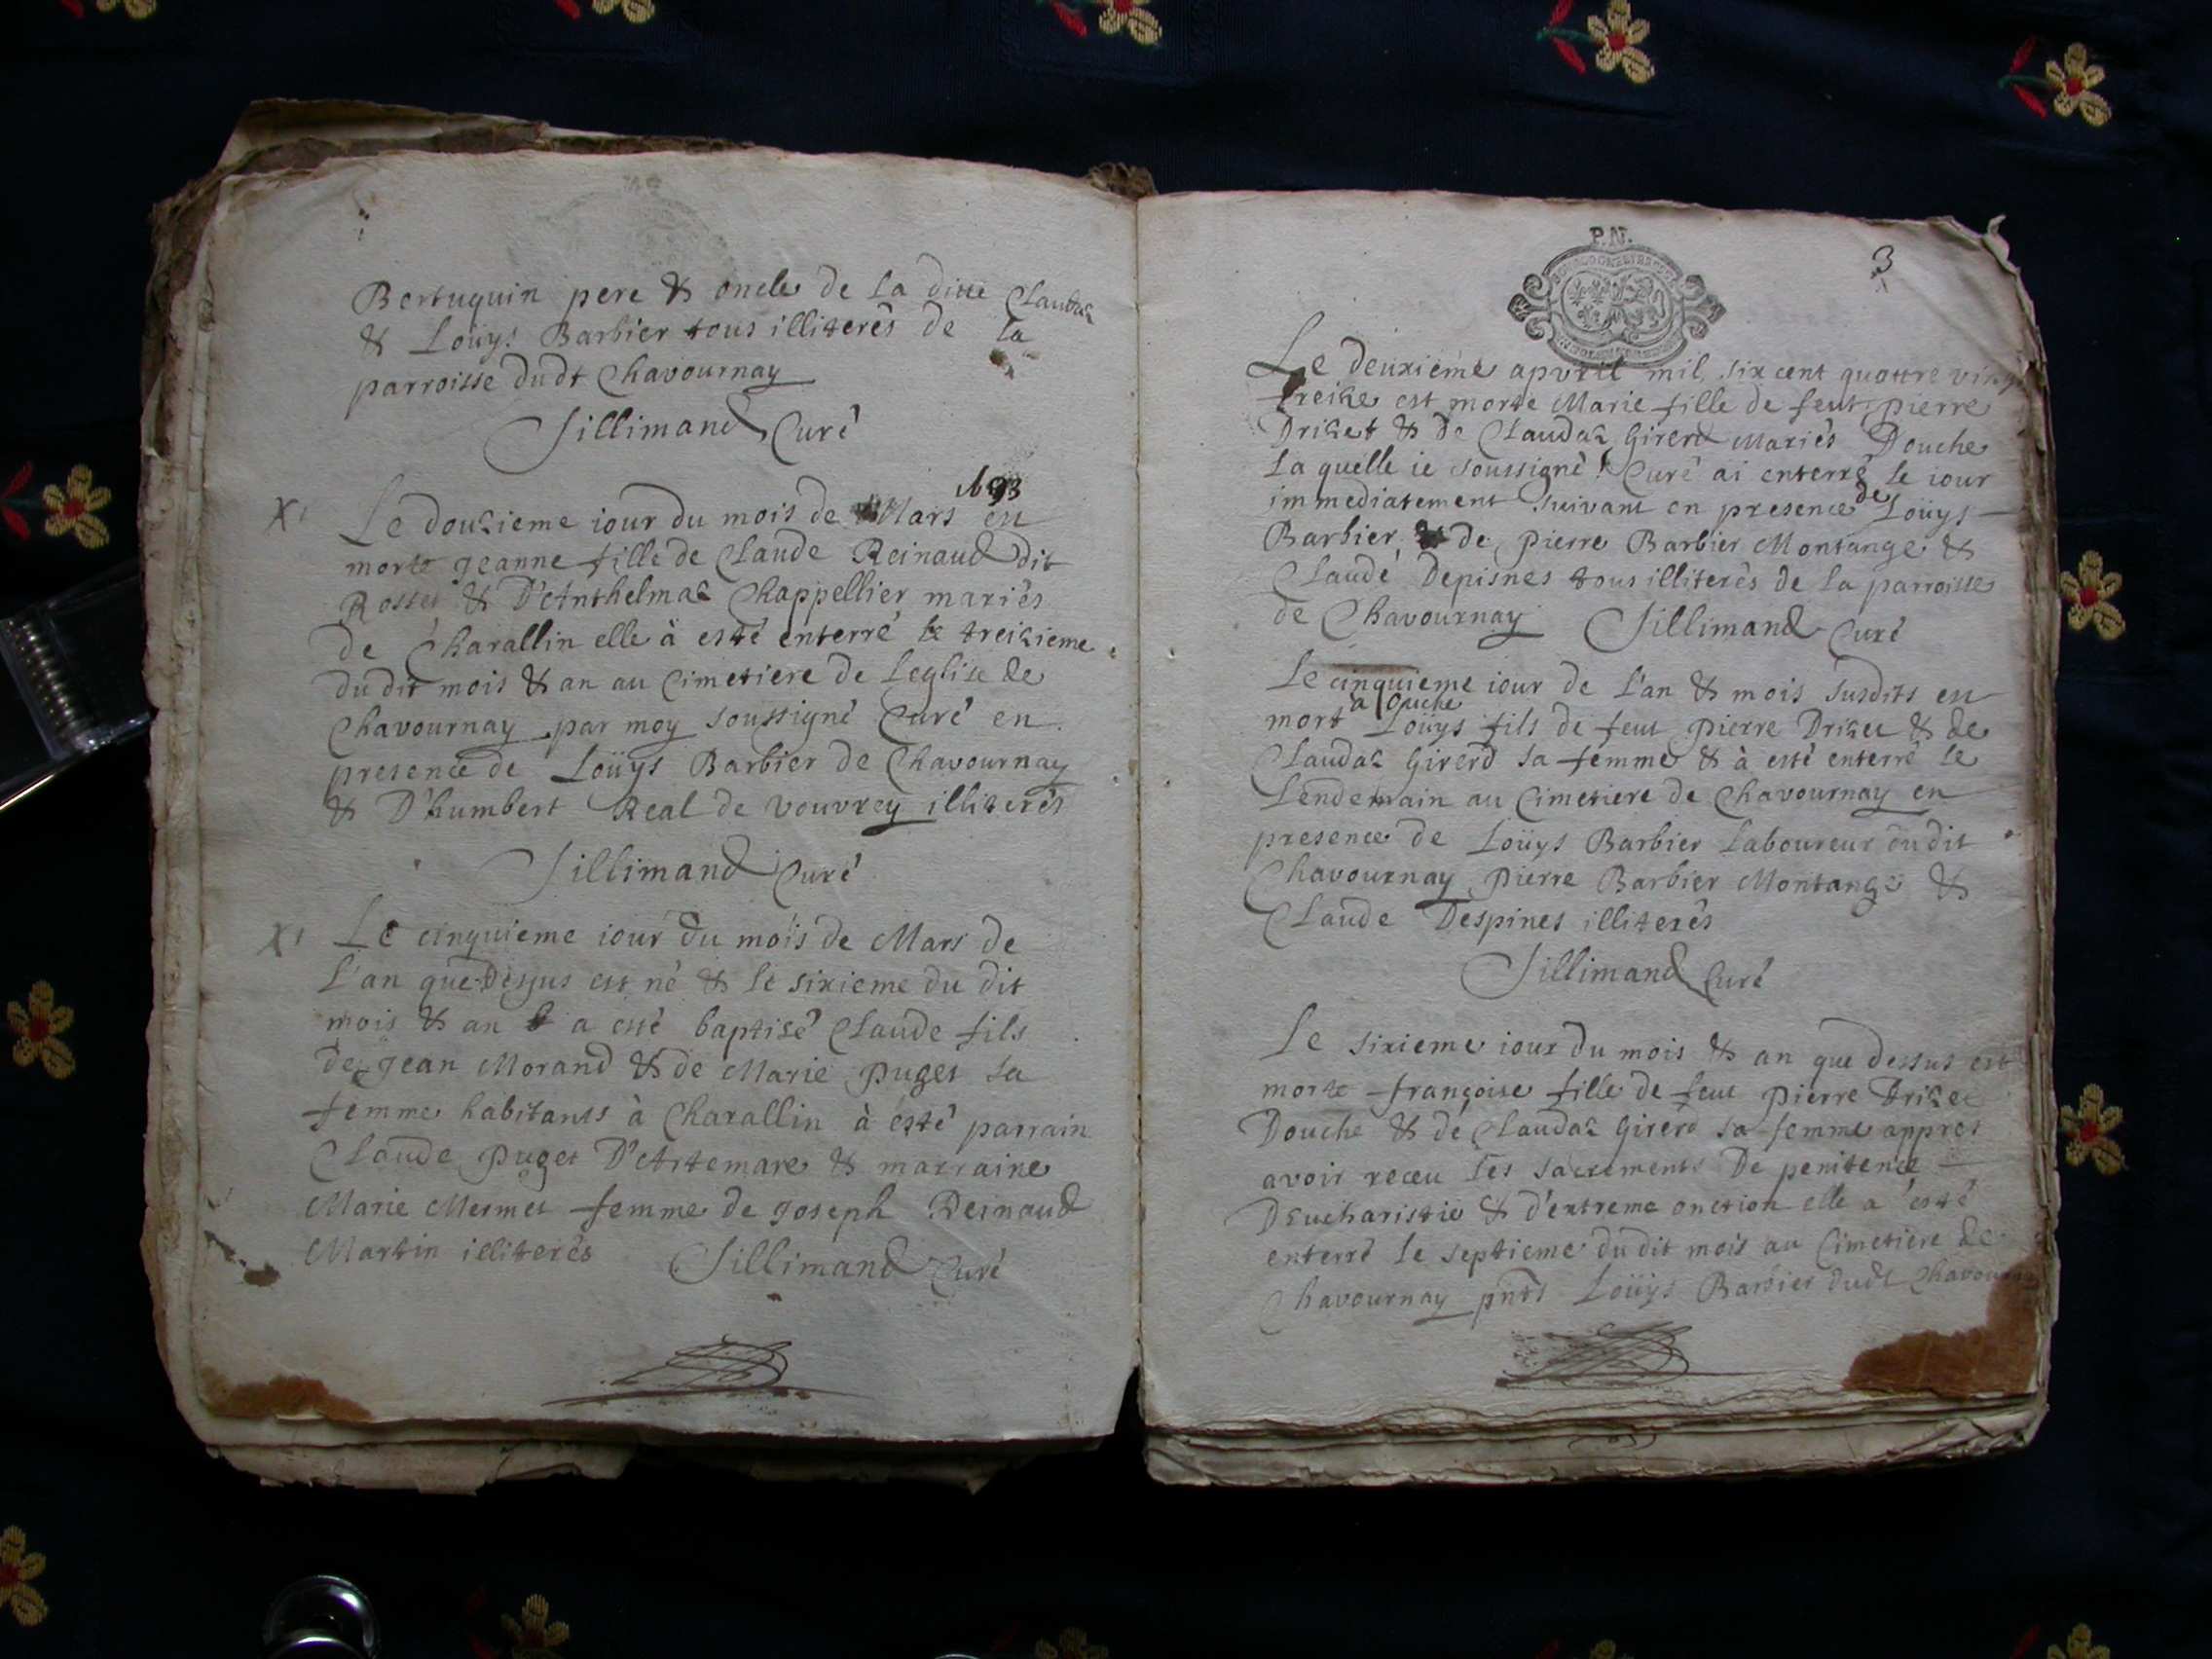 Bertuquin pere & oncle de la ditte Claudaz
& Loüys Barbier tous illiterés de la
parroisse dudt Chavournay
Sillimand Curé
X
1693
Le douzieme iour du mois de Mars est
morte Jeanne fille de Claude Reinaud dit
Rosset & D'Anthelmaz Chappellier mariés
de Charallin elle à esté enterré le treizieme
du dit mois & an au Cimetiere de Leglise de
Chavournay par moy soussigné Curé en
presence de Loüys Barbier de Chavournay
& D'humbert Real de vouvrey illiterés
Sillimand Curé
X
Le cinquieme iour du mois de Mars de
l'an que Dessus est né & le sixieme du dit
mois & an a esté baptisé Claude fils
de Jean Morand & de Marie Puget sa
femme habitants à Charallin à esté parrain
Claude Puget D'Artemare & marraine
Marie Mermet femme de Joseph Reinaud
Martin illiterés Sillimand Curé
P.N.
3
Le deuxiéme apvril mil six cent quattre vingt
treize est morte Marie fille de feut Pierre
Drizet & de Claudaz Girerd Mariés Douche
La quelle ie soussigné Curé ai enterré le iour
immediatement suivant en presence de Loüys
Barbier de Pierre Barbier Montange &
Claude Depisnes tous illiterés de la parroisse
de Chavournay Sillimand Curé
Le cinquieme iour de L'an & mois susdits est
mort a ouche Loüys fils de feut Pierre Drizet & de
Claudaz Girerd sa femme & à esté enterré le
Lendemain au Cimetiere de Chavournay en
presence de Loüys Barbier Laboureur dudit
Chavournay Pierre Barbier Montange &
Claude Despines illiterés
Sillimand Curé
Le sixieme iour du mois & an que dessus est
morte françoise fille de feut Pierre Drizet
Douche & de Claudaz Girerd sa femme appres
avoir receu les sacrements De penitence
Deucharistie & d'extreme onction elle a esté
enterré le septieme du dit mois au Cimetiere de
Chavournay pnts Loüys Barbier dudt Chavournay